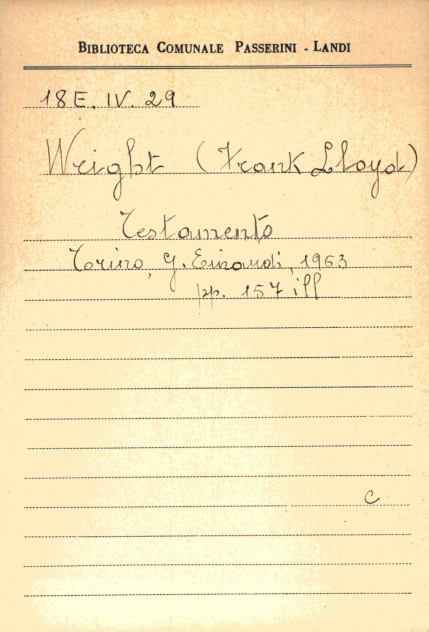 BIBLIOTECA COMUNALE PASSERINI - LANDI
18 E. IV. 29
Wright (Frank Lloyd)
Testamento
Torino, G. Einaudi, 1963
pp. 157 ill
C